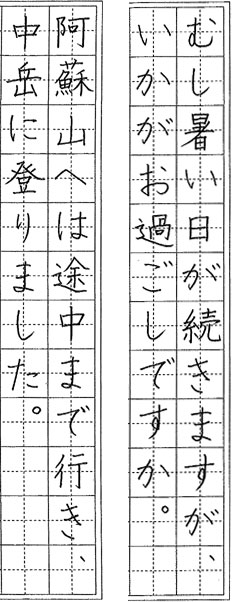 むし暑い日が続きますが、
いかがお過ごしですか。
阿蘇山へは途中まで行き、
中岳に登りました。